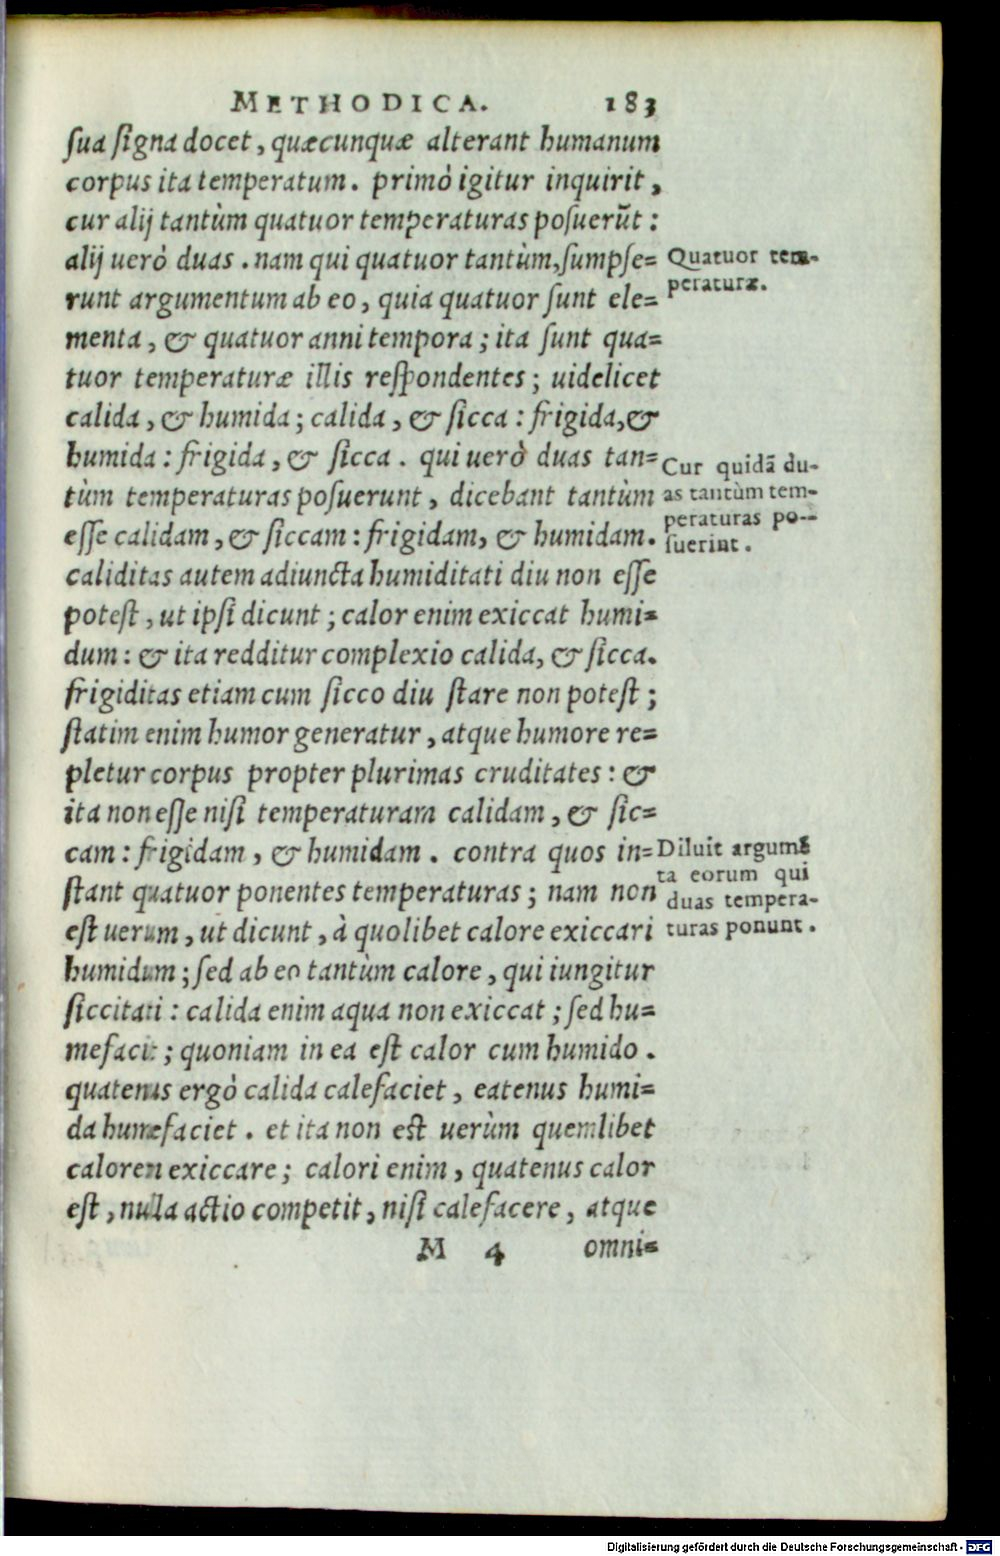 METHODICA. 183
sua signa docet, quæcunquæ alterant humanum
corpus ita temperatum. primò igitur inquirit,
cur alij tantùm quatuor temperaturas posuerũt:
alij uerò duas. nam qui quatuor tantùm, sumpse=
runt argumentum ab eo, quia quatuor sunt ele=
menta, & quatuor anni tempora; ita sunt qua=
tuor temperaturæ illis respondentes; uidelicet
calida, & humida; calida, & sicca: frigida, &
humida: frigida, & sicca. qui uerò duas tan=
tùm temperaturas posuerunt, dicebant tantùm
esse calidam, & siccam: frigidam, & humidam.
caliditas autem adiuncta humiditati diu non esse
potest, ut ipsi dicunt; calor enim exiccat humi=
dum: & ita redditur complexio calida, & sicca.
frigiditas etiam cum sicco diu stare non potest;
statim enim humor generatur, atque humore re=
pletur corpus propter plurimas cruditates: &
ita non esse nisi temperaturam calidam, & sic=
cam: frigidam, & humidam. contra quos in=
stant quatuor ponentes temperaturas; nam non
est uerum, ut dicunt, à quolibet calore exiccari
humidum; sed ab eo tantùm calore, qui iungitur
siccitati: calida enim aqua non exiccat; sed hu=
mefacit; quoniam in ea est calor cum humido.
quatenus ergò calida calefaciet, eatenus humi=
da humefaciet. et ita non est uerùm quemlibet
calorem exiccare; calori enim, quatenus calor
est, nulla actio competit, nisi calefacere, atque
M 4 omni=
Quatuor tem-
peraturæ.
Cur quidã du-
as tantùm tem-
peraturas po-
suerint.
Diluit argumẽ
ta eorum qui
duas tempera-
turas ponunt.
Digitalisierung gefördert durch die Deutsche Forschungsgemeinschaft - DFG